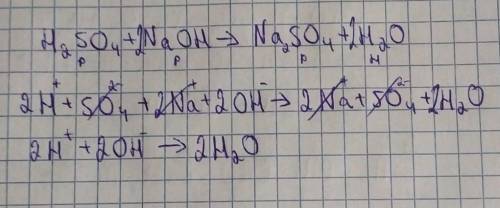 H₂SO₄+2NaOH→Na₂SO₄+2H₂O
р р р н
2H⁺+SO₄²⁻+2Na⁺+2OH⁻→2Na⁺+SO₄²⁻+2H₂O
2H⁺+2OH⁻→2H₂O